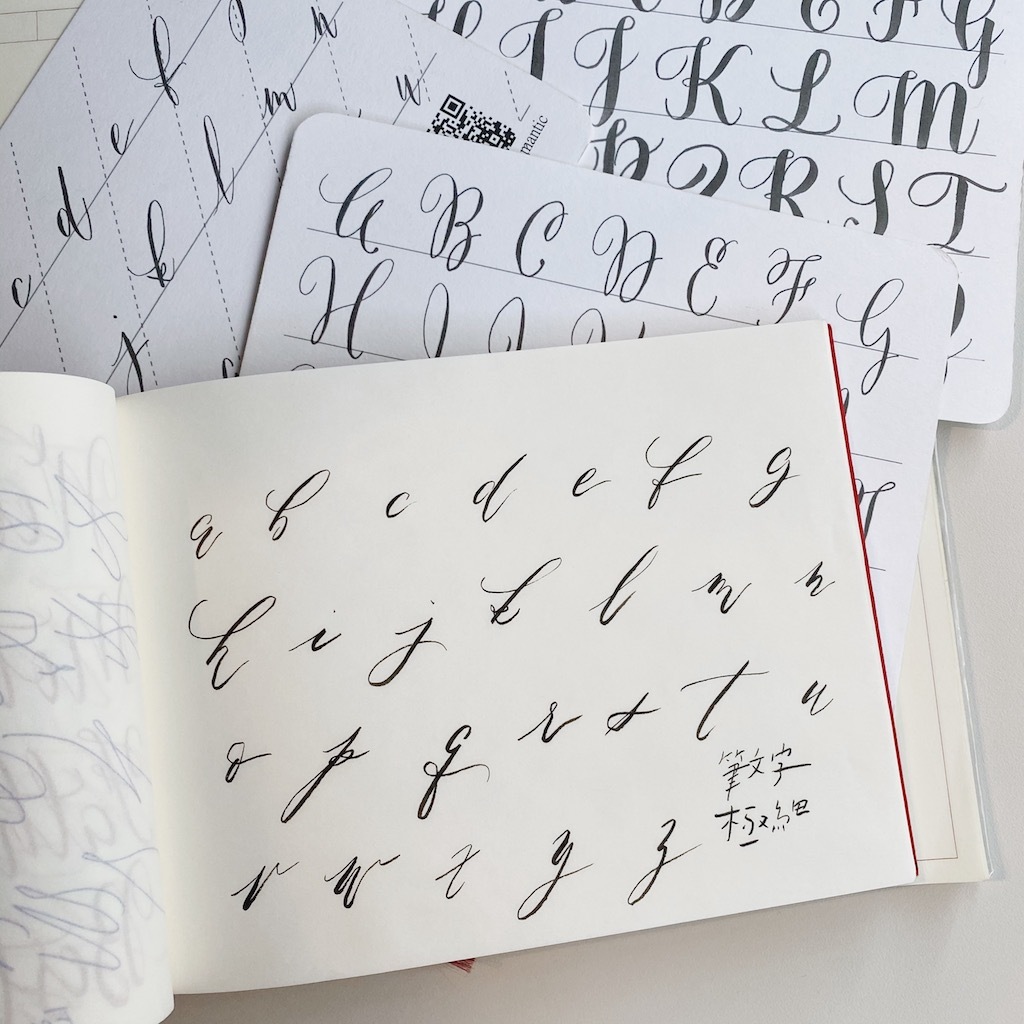 c d e f g
j k l m n
u
mantic
B E F G
J K L M
Q R S T
A B C D E F G
H I J
a b c d e f g
h i j k l m n
o p q r s t u
筆文字
極細
v w x y z